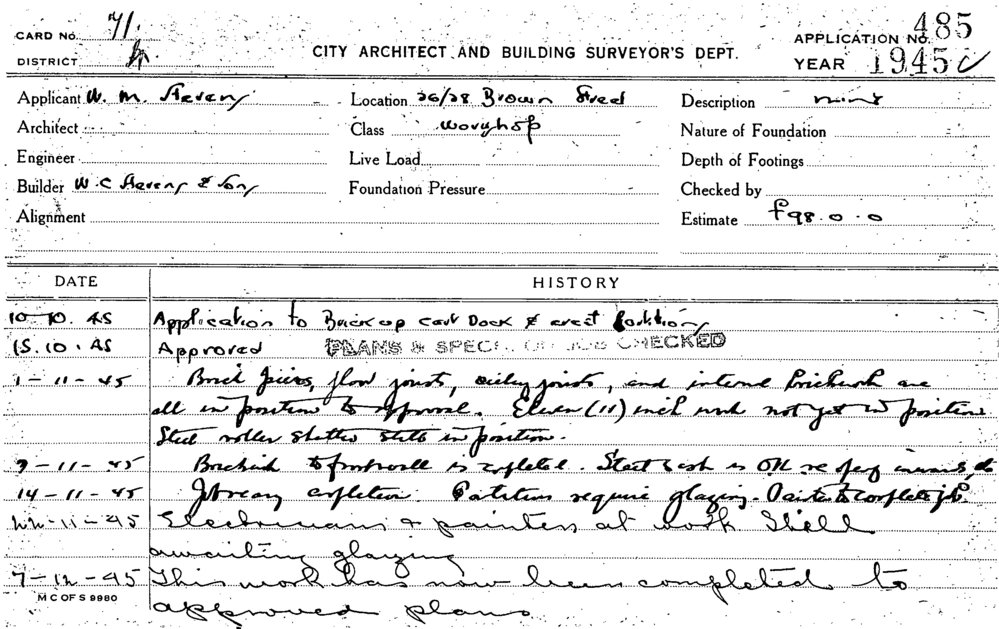 CARD No. 71.
DISTRICT
CITY ARCHITECT AND BUILDING SURVEYOR'S DEPT.
APPLICATION No. 485
YEAR 1945
Applicant W. M. Stevens
Location 26/28 Brown Street
Description
Architect
Class
Nature of Foundation
Engineer
Live Load
Depth of Footings
Builder W. C Stevens & Sons
Foundation Pressure
Checked by
Alignment
Estimate £98.0.0
DATE HISTORY
10-10.45 Application to Brick up cart Dock & erect Partitions
15.10.45 Approved PLANS & SPECN. ON JOB CHECKED
1-11-45 Brick piers, floor joists, ceiling joists, and internal brickwork are
all in position to approval. Eleven (11) inch work not yet in position
Steel roller shutter still in position.
9-11-45 Brickwork to front wall is completed. Steel sash is
14-11-45 Job nearing completion. Partitions require glazing. Painter to complete job.
22-11-45 Electricians & painters at work Still
awaiting glazing
7-12-45 This work has now been completed to
M C OF S 9980
approved plans